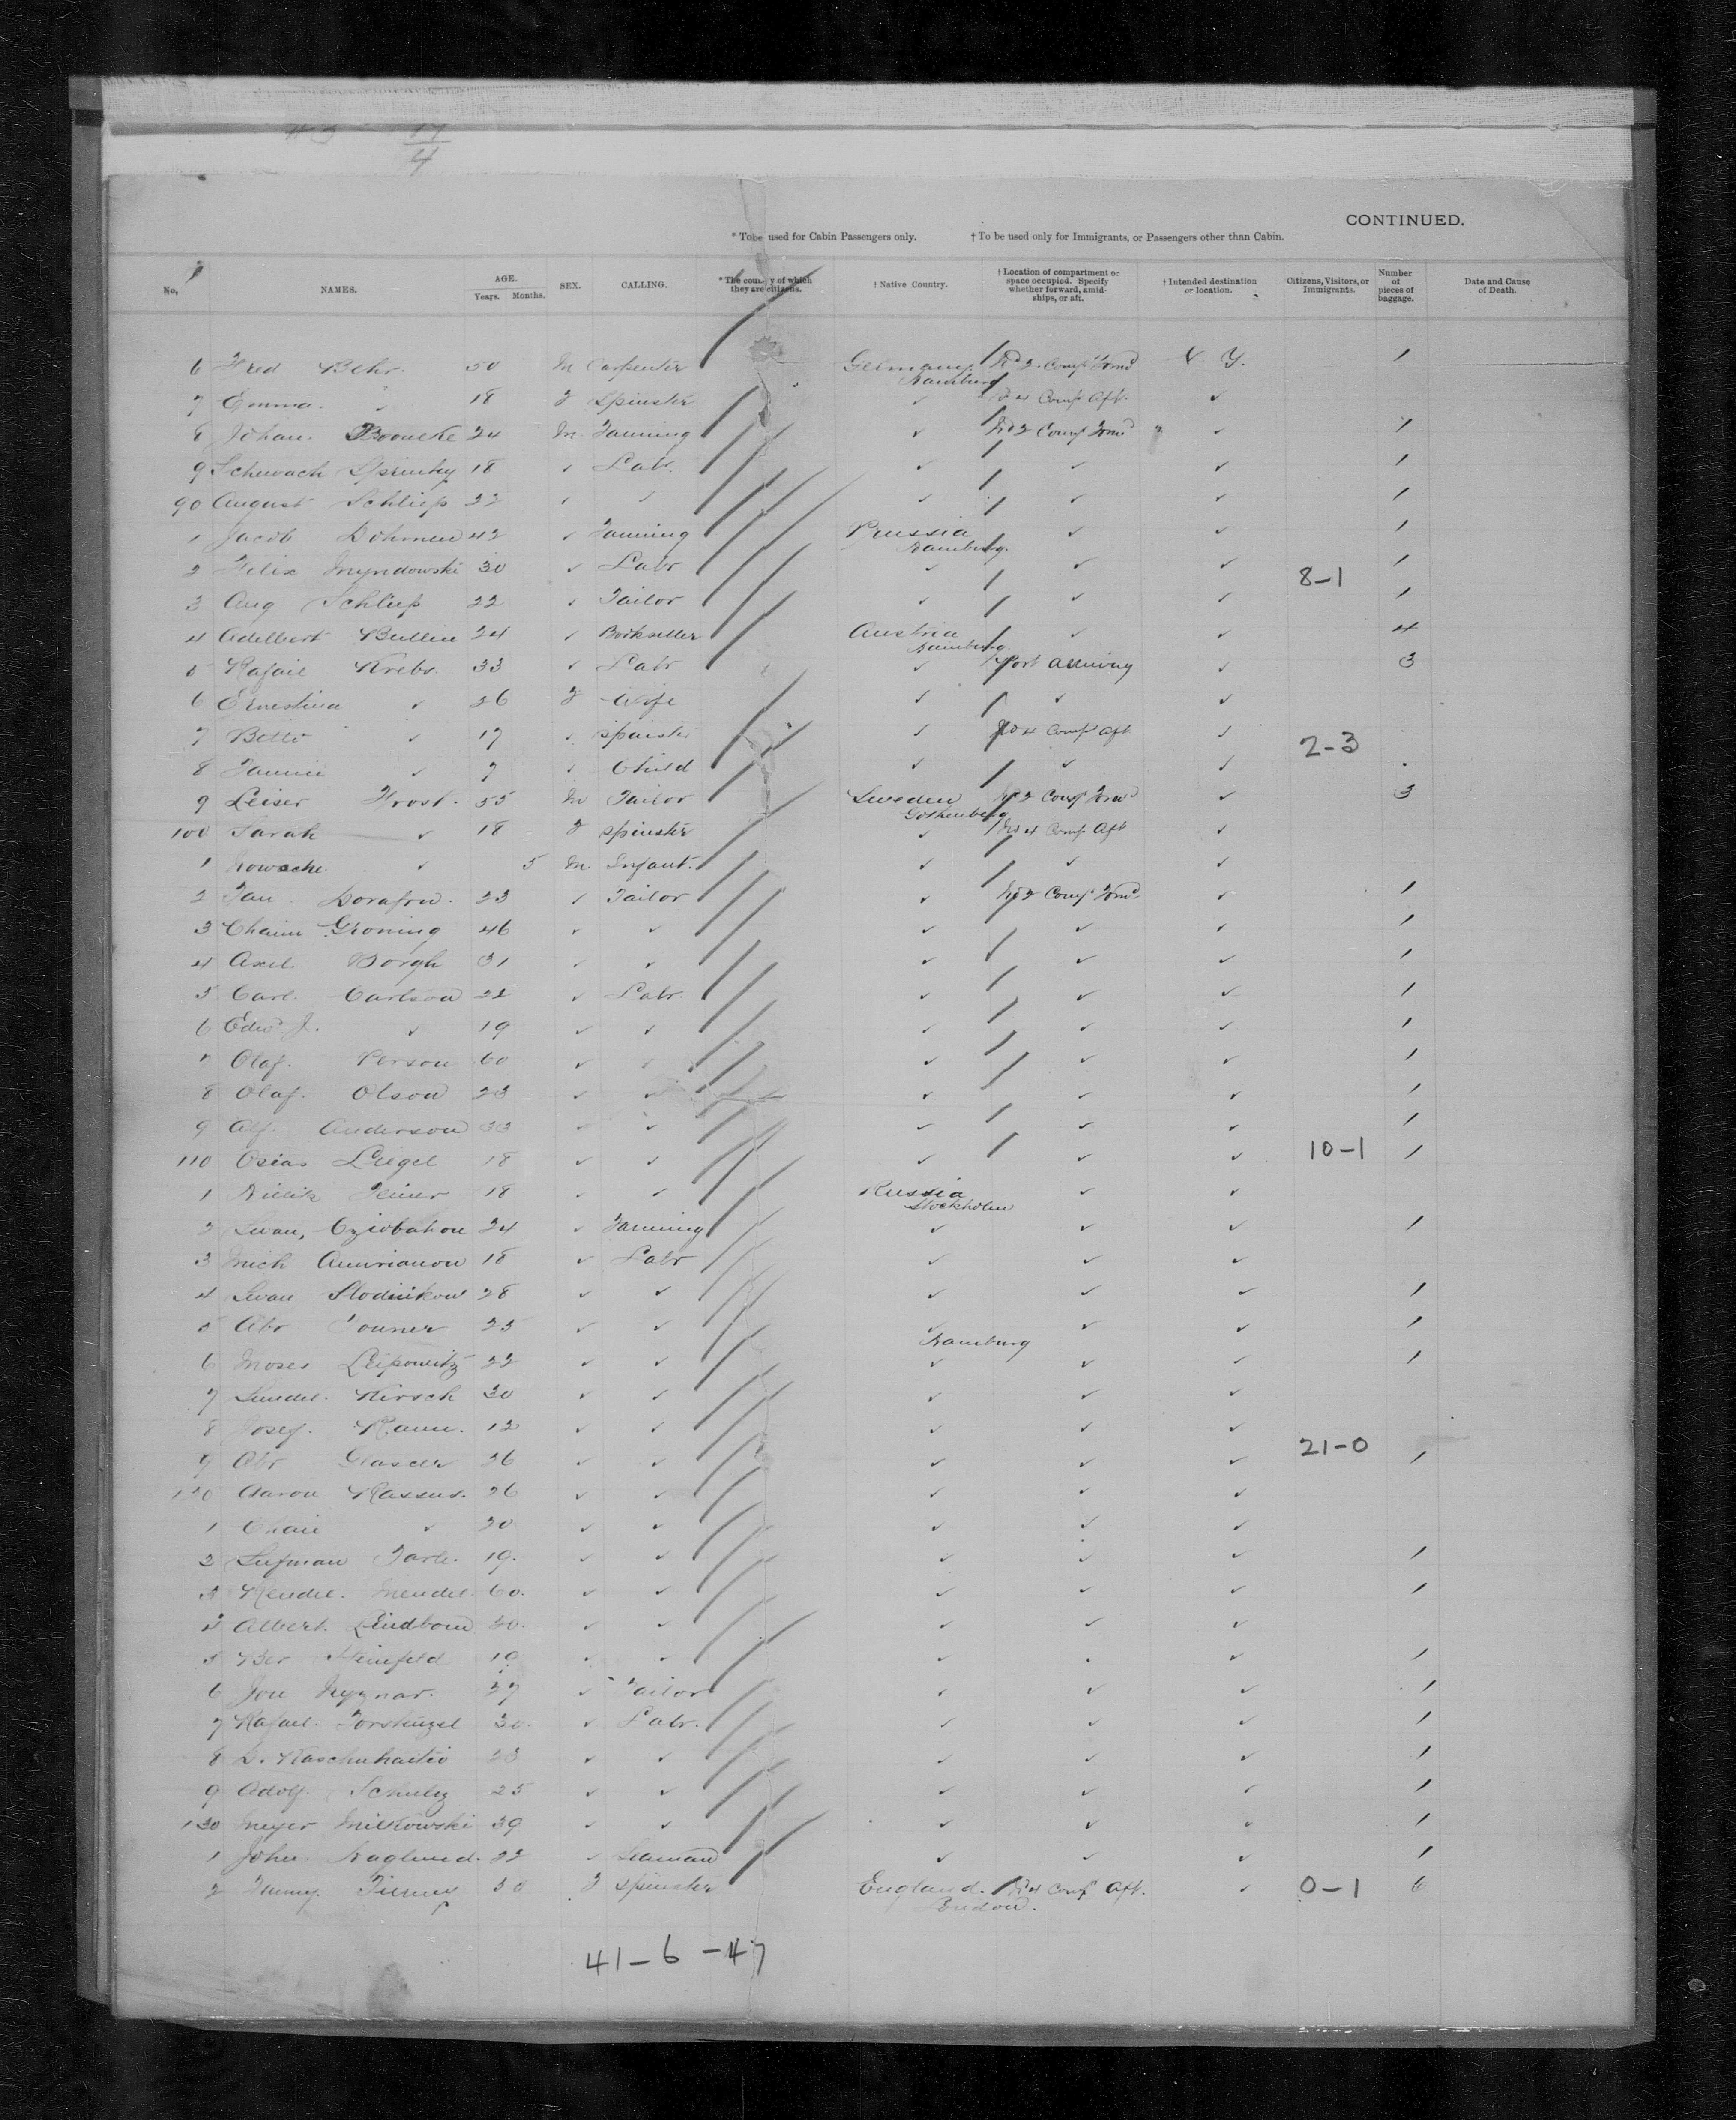 4
CONTINUED.
* To be used for Cabin Passengers only. † To be used only for Immigrants, or Passengers other than Cabin.
No. NAMES. AGE. Years. Months. SEX. CALLING. * The country of which they are citizens. † Native Country. † Location of compartment or space occupied. Specify whether forward, amidships, or aft. † Intended destination or location. Citizens, Visitors, or Immigrants. Number of pieces of baggage. Date and Cause of Death.
6 Fred Behr. 50 M Carpenter Germany No 2 Comp Forwd N. Y. 1
Hamburg
7 Emma. ✓ 18 F Spinster ✓ No 4 Comp Aft. ✓
8 Johan. 24 M. ✓ No 2 Comp Forwd ✓ 1
9 18 ✓ Labr. ✓ ✓ ✓ 1
90 August Schliep 22 ✓ ✓ ✓ ✓ ✓ 1
1 Jacob Dohmen 42 ✓ Prussia ✓ ✓ 1
Hamburg.
2 Felix Myndowski 30 ✓ Labr ✓ ✓ ✓ 8-1 1
3 Aug Schliep 22 ✓ Tailor ✓ ✓ ✓ 1
4 Adelbert Bullin 24 ✓ Bookseller Austria ✓ ✓ 4
Hamburg
5 Rafail Krebs. 33 ✓ Labr ✓ ✓ 3
6 Ernestina ✓ 26 F Wife ✓ ✓ ✓
7 Betti ✓ 17 ✓ Spinster ✓ No 4 Comp Aft ✓ 2-3
8 Fannie ✓ 7 ✓ Child ✓ ✓ ✓
9 Leiser Frost. 55 M Tailor Sweden No 2 Comp Forwd ✓ 3
Gothenberg
100 Sarah ✓ 18 F Spinster ✓ No 4 Comp. Aft ✓
1 ✓ 5 M. Infant. ✓ ✓ ✓
2 23 ✓ Tailor ✓ No 2 Comp Forwd ✓ 1
3 Chaim Groning 46 ✓ ✓ ✓ ✓ ✓ 1
4 Axel Borgh 31 ✓ ✓ ✓ ✓ ✓ 1
5 Carl. Carlson 22 ✓ Labr. ✓ ✓ ✓ 1
6 Edw. J. ✓ 19 ✓ ✓ ✓ ✓ ✓ 1
7 Olaf. Person 60 ✓ ✓ ✓ ✓ ✓ 1
8 Olaf. Olson 23 ✓ ✓ ✓ ✓ ✓ 1
9 Alf. Anderson 33 ✓ ✓ ✓ ✓ ✓ 1
110 Osias 18 ✓ ✓ ✓ ✓ ✓ 10-1 1
1 18 ✓ ✓ Russia ✓ ✓
Stockholm
2 Iwan, 24 ✓ ✓ ✓ ✓ 1
3 Mich 18 ✓ Labr ✓ ✓ ✓
4 Iwan Slodinikow 28 ✓ ✓ ✓ ✓ ✓ 1
5 Abr 25 ✓ ✓ ✓ ✓ ✓ 1
Hamburg
6 Moses Leipowitz 22 ✓ ✓ ✓ ✓ ✓ 1
7 Hirsch 30 ✓ ✓ ✓ ✓ ✓
8 Josef. 12 ✓ ✓ ✓ ✓ ✓
21-0
9 Abr Glaser 26 ✓ ✓ ✓ ✓ ✓ 1
120 Aaron 26 ✓ ✓ ✓ ✓ ✓
1 ✓ 20 ✓ ✓ ✓ ✓ ✓
2 19. ✓ ✓ ✓ ✓ ✓ 1
3 Mendel. 60. ✓ ✓ ✓ ✓ ✓ 1
4 Albert. Lindbom 30. ✓ ✓ ✓ ✓ ✓
5 Ber 19 ✓ ✓ ✓ ✓ 1
6 27 ✓ Tailor ✓ ✓ ✓ 1
7 Rafael. 30. ✓ Labr. ✓ ✓ ✓ 1
8 23 ✓ ✓ ✓ ✓ ✓ 1
9 Adolf. Schultz 25 ✓ ✓ ✓ ✓ ✓ 1
130 Meyer Milkowski 39 ✓ ✓ ✓ ✓ ✓ 1
1 John. Haglund. 22 ✓ Seaman ✓ ✓ ✓ 1
2 Fanny. 30 F Spinster England. No 4 Comp Aft. ✓ 0-1 6
London.
41-6-47